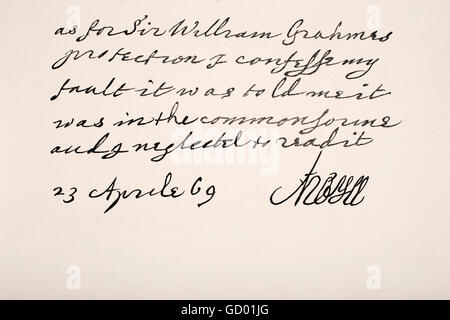 as for Sir William Grahmes
protection I confesse my
fault it was told me it
was in the common forme
and I neglected to read it
23 Aprile 69
alamy
a
a
GD01JG